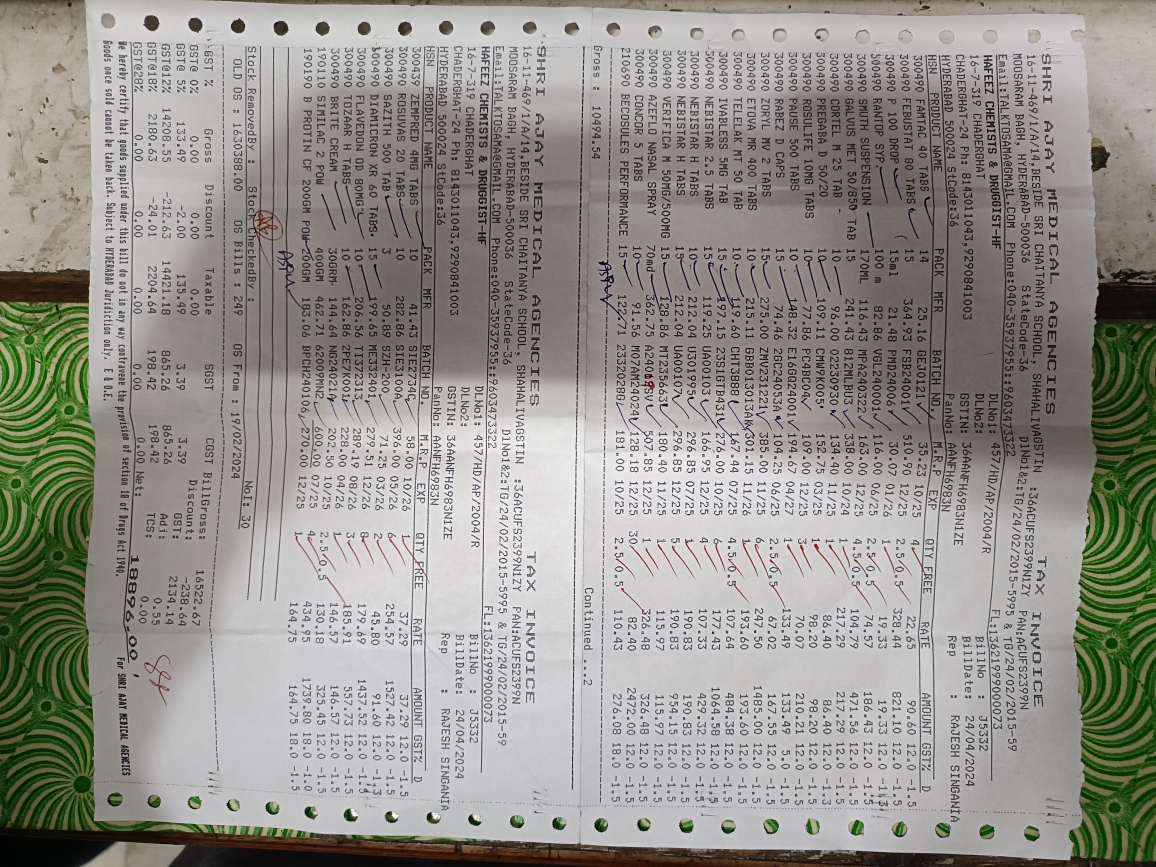 SHRI AJAY MEDICAL AGENCIES TAX INVOICE
16-11-469/1/A/14,BESIDE SRI CHAITANYA SCHOOL, SHAHALIVAGSTIN :36ACUFS2399N1ZY PAN:ACUFS2399N
MOOSARAM BAGH, HYDERABAD-500036 StateCode-36 DlNo1&2:TG/24/02/2015-5995 & TG/24/02/2015-59
Email:TALKTOSAMA@GMAIL.COM Phone:040-35937955::9603473322 FL:13621999000073
HAFEEZ CHEMISTS & DRUGGIST-HF DLNo1: 457/HD/AP/2004/R BillNo : J5332
16-7-319 CHADERGHAT DLNo2: BillDate: 24/04/2024
CHADERGHAT-24 Ph: 8143011043,9290841003 GSTIN: 36AANFH6983N1ZE
HYDERABAD 500024 StCode:36 PanNo: AANFH6983N Rep : RAJESH SINGANIA
HSN PRODUCT NAME PACK MFR BATCH NO. M.R.P EXP QTY FREE RATE AMOUNT GST% D
300490 FAMTAC 40 TABS 14 25.16 GEJ0121 35.23 10/25 4 22.65 90.60 12.0 -1.5
300490 FEBUSTAT 80 TABS 15 364.93 FSB24001 510.90 12/25 2.5/0.5 328.44 821.10 12.0 -1.5
300490 P 100 DROP 15ml 21.48 PMD24006 30.07 01/26 1 19.33 19.33 12.0
300490 RANTOP SYP 100 m 82.86 VGL24001 116.00 06/25 2.5/0.5 74.57 186.43 12.0 -1.5
300490 SMUTH SUSPENSION 170ML 116.43 MPFA240322 163.00 12/25 4.5/0.5 104.79 471.56 12.0 -1.5
300490 GALVUS MET 50/850 TAB 15 241.43 812MLBU3 338.00 10/24 1 217.29 217.29 12.0 -1.5
300490 CORTEL M 25 TAB 10 96.00 02230930 134.40 10/25 1 86.40 86.40 12.0
300490 PREGEBA D 50/20 10 109.11 CMW9K005 152.75 03/25 1 98.20 98.20 12.0 -1.5
300490 ROSULIFE 10MG TABS 10 77.86 PC4BC04 109.00 12/25 3 70.07 210.21 12.0 -1.5
300490 PAUSE 500 TABS 10 148.32 E168Q24001 194.67 04/27 1 133.49 133.49 5.0 -1.5
300490 RABEZ D CAPS 15 74.46 2BC24053A 104.25 06/25 2.5/0.5 67.02 167.55 12.0 -1.5
300490 ZORYL MV 2 TABS 15 275.00 ZMV231221 385.00 11/25 6 247.50 1485.00 12.0 -1.5
300490 ETOVA MR 400 TABS 10 215.11 GBB013013AK 301.15 11/26 1 193.60 193.60 12.0 -1.5
300490 TELEAK MT 50 TAB 10 119.60 CHT388B 167.44 07/25 4.5/0.5 107.64 484.38 12.0 -1.5
300490 IVABLESS 5MG TAB 15 197.15 23S1GTB431 276.00 12/25 6 177.43 1064.58 12.0 -1.5
300490 NEBISTAR 2.5 TABS 15 119.25 UA00103 166.95 12/25 4 107.33 429.32 12.0 -1.5
300490 NEBISTAR H TABS 10 212.04 U301995 296.85 07/25 1 190.83 190.83 12.0 -1.5
300490 NEBISTAR H TABS 15 212.04 UA00107 296.85 12/25 5 190.83 954.15 12.0 -1.5
300490 VERIFICA M 50MG/500MG 15 128.86 MTZ3566B 180.40 11/25 1 115.97 115.97 12.0 -1.5
300490 AZEFLO NASAL SPRAY 70md 362.75 507.85 12/25 1 326.48 326.48 12.0 -1.5
300490 CONCOR 5 TABS 10 91.56 M07AM24024 128.18 12/25 30 82.40 2472.00 12.0 -1.5
210690 BECOSULES PERFORMANCE 15 122.71 2332028G 181.00 10/25 2.5/0.5 110.43 276.08 18.0 -1.5
Gross : 10494.54 Continued ...2
SHRI AJAY MEDICAL AGENCIES TAX INVOICE
16-11-469/1/A/14,BESIDE SRI CHAITANYA SCHOOL, SHAHALIVAGSTIN :36ACUFS2399N1ZY PAN:ACUFS2399N
MOOSARAM BAGH, HYDERABAD-500036 StateCode-36 DlNo1&2:TG/24/02/2015-5995 & TG/24/02/2015-59
Email:TALKTOSAMA@GMAIL.COM Phone:040-35937955::9603473322 FL:13621999000073
HAFEEZ CHEMISTS & DRUGGIST-HF DLNo1: 457/HD/AP/2004/R BillNo : J5332
16-7-319 CHADERGHAT DLNo2: BillDate: 24/04/2024
CHADERGHAT-24 Ph: 8143011043,9290841003 GSTIN: 36AANFH6983N1ZE
HYDERABAD 500024 StCode:36 PanNo: AANFH6983N Rep : RAJESH SINGANIA
HSN PRODUCT NAME PACK MFR BATCH NO. M.R.P EXP QTY FREE RATE AMOUNT GST% D
300439 ZEMPRED 4MG TABS 10 41.43 SIE2734C 58.00 10/26 1 37.29 37.29 12.0 -1.5
300490 ROSUVAS 20 TABS 10 282.86 SIE3100A 396.00 05/26 6 254.57 1527.42 12.0 -1.5
300490 GAZITH 500 TAB 3 50.89 SZH-200 71.25 03/26 2 45.80 91.60 12.0
300490 DIAMICRON XR 60 TABS. 15 199.65 ME333401 279.51 12/26 8 179.69 1437.52 12.0 -1.5
300490 FLAVEDON OD 80MG 10 206.56 TI37231 289.19 08/26 3 185.91 557.73 12.0 -1.5
300490 TOZAAR H TABS 10 162.86 2PE7K001 228.00 04/26 1 146.57 146.57 12.0 -1.5
300490 BRITE CREAM 30GRM 144.64 WG240211A 202.50 10/25 2.5/0.5 130.18 325.45 12.0 -1.5
190110 SIMILAC 2 POW 400GM 462.71 62007MUN2 600.00 07/25 4 434.95 1739.80 18.0 -1.5
190190 B PROTIN CF 200GM POW 200GM 183.06 BPCH240106 270.00 12/25 1 164.75 164.75 18.0 -1.5
Stock RemovedBy : Stock CheckedBy : NoI: 30
OLD OS : 1630388.00 OS Bills : 249 OS From : 19/02/2024
GST % Gross Discount Taxable SGST CGST BillGross: 16522.67
GST@ 0% 0.00 0.00 0.00 Discount: -238.64
GST@ 5% 133.49 -2.00 135.49 3.39 3.39 GST: 2134.14
GST@12% 14208.55 -212.63 14421.18 865.26 865.26 Adj: 0.55
GST@18% 2180.63 -24.01 2204.64 198.42 198.42 TCS: 0.00
GST@28% 0.00 0.00 0.00 0.00 0.00 Net: 18896.00
We hereby certify that goods supplied under this bill do not in any way contravene the provision of section 18 of Drugs Act 1940.
Goods once sold cannot be taken back Subject to HYDERABAD Juridiction only. E & O.E. For SHRI AJAY MEDICAL AGENCIES